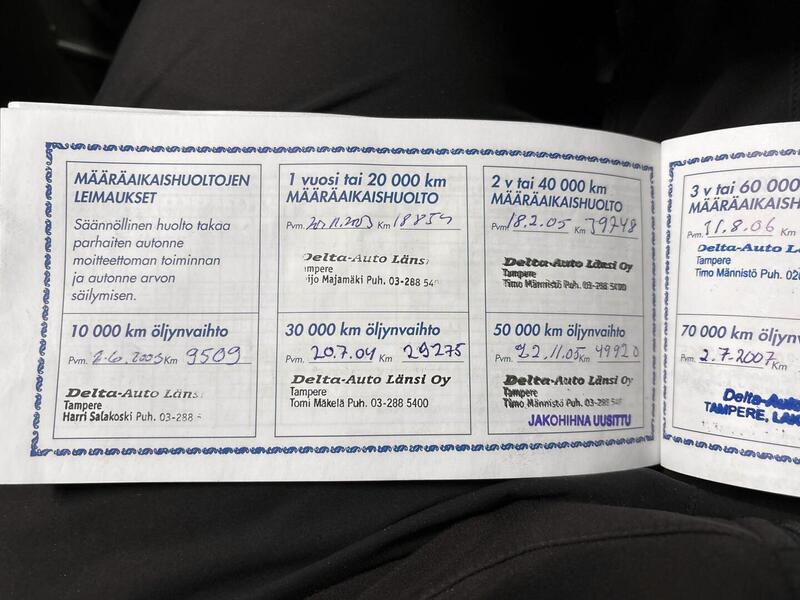 MÄÄRÄAIKAISHUOLTOJEN
LEIMAUKSET
Säännöllinen huolto takaa
parhaiten autonne
moitteettoman toiminnan
ja autonne arvon
säilymisen.
1 vuosi tai 20 000 km
MÄÄRÄAIKAISHUOLTO
Pvm. 20.11.2003 Km 18854
Delta-Auto Läns
Tampere
ijo Majamäki Puh. 03-288 54
2 v tai 40 000 km
MÄÄRÄAIKAISHUOLTO
Pvm. 18.2.05 Km 39748
Delta-Auto Länsi Oy
Tampere
Timo Männistö Puh. 03-288 5400
3 v tai 60 000
MÄÄRÄAIKAISH
Pvm. 11.8.06 Km
Delta-Auto L
Tampere
Timo Männistö Puh. 02
10 000 km öljynvaihto
Pvm. 2.6.2003 Km 9509
Delta-Auto Läns
Tampere
Harri Salakoski Puh. 03-288
30 000 km öljynvaihto
Pvm. 20.7.04 Km 29275
Delta-Auto Länsi Oy
Tampere
Tomi Mäkelä Puh. 03-288 5400
50 000 km öljynvaihto
Pvm. 22.11.05 Km 49920
Delta-Auto Länsi Oy
Tampere
Timo Männistö Puh. 03-288 54
JAKOHIHNA UUSITTU
70 000 km öljynv
Pvm. 2.7.2007 Km
Delta-Auto
TAMPERE, LAK